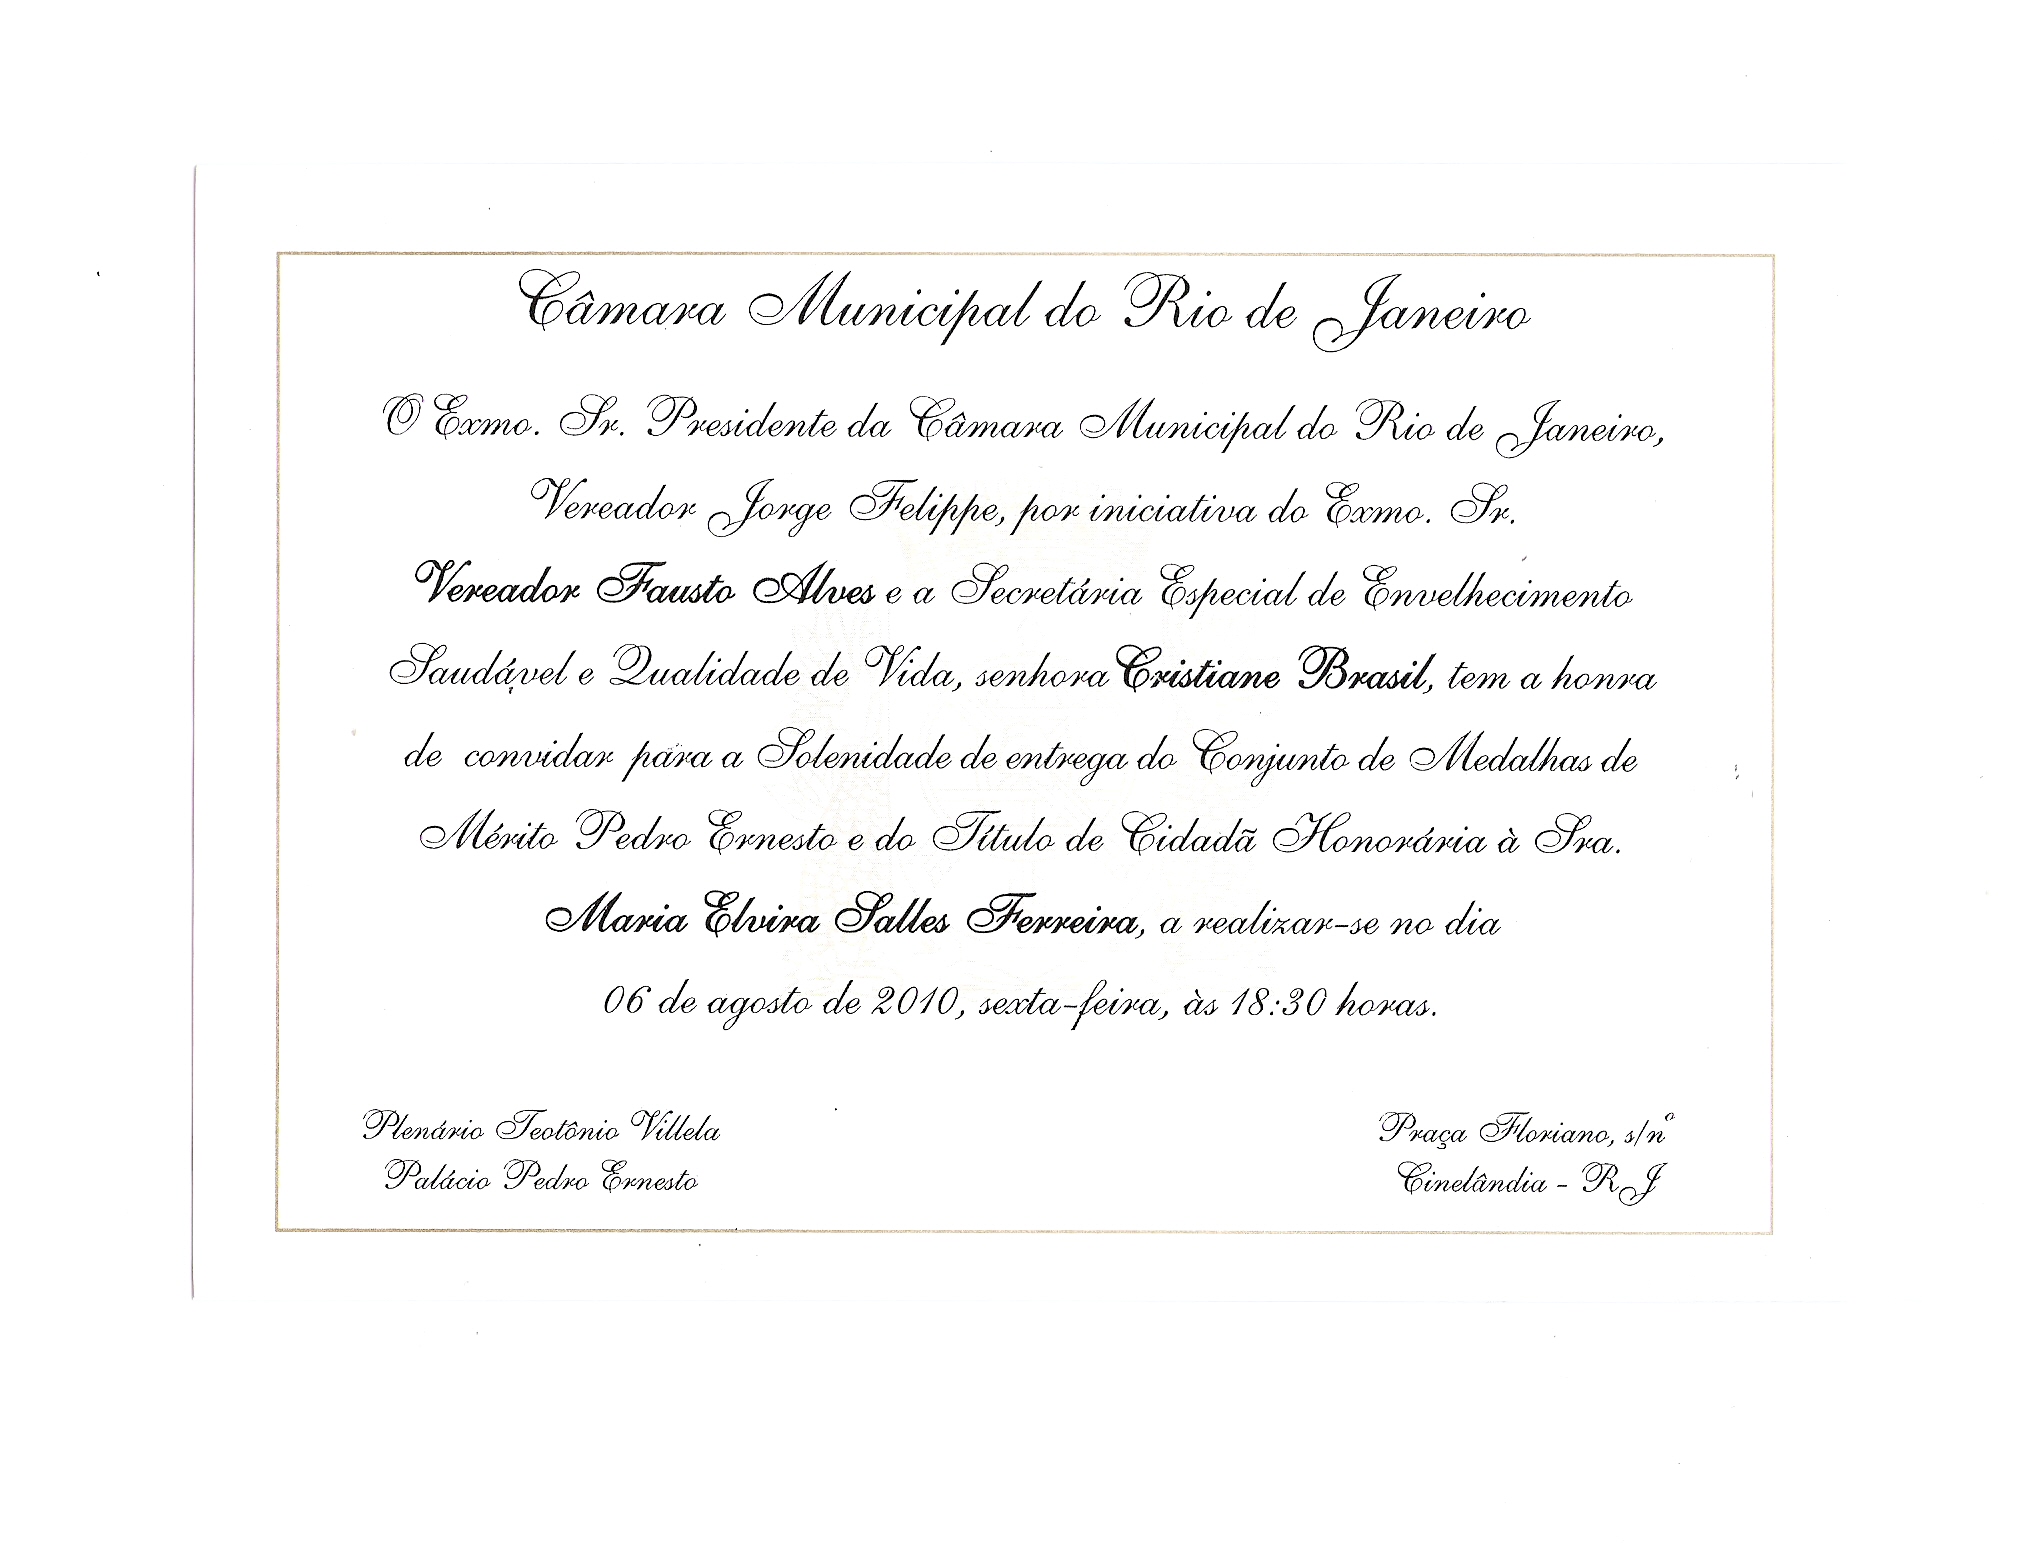 Câmara Municipal do Rio de Janeiro
O Exmo. Sr. Presidente da Câmara Municipal do Rio de Janeiro,
Vereador Jorge Felippe, por iniciativa do Exmo. Sr.
Vereador Fausto Alves e a Secretária Especial de Envelhecimento
Saudável e Qualidade de Vida, senhora Cristiane Brasil, tem a honra
de convidar para a Solenidade de entrega do Conjunto de Medalhas de
Mérito Pedro Ernesto e do Título de Cidadã Honorária à Sra.
Maria Elvira Salles Ferreira, a realizar-se no dia
06 de agosto de 2010, sexta-feira, às 18:30 horas.
Plenário Teotônio Villela
Palácio Pedro Ernesto
Praça Floriano, s/nº
Cinelândia - RJ